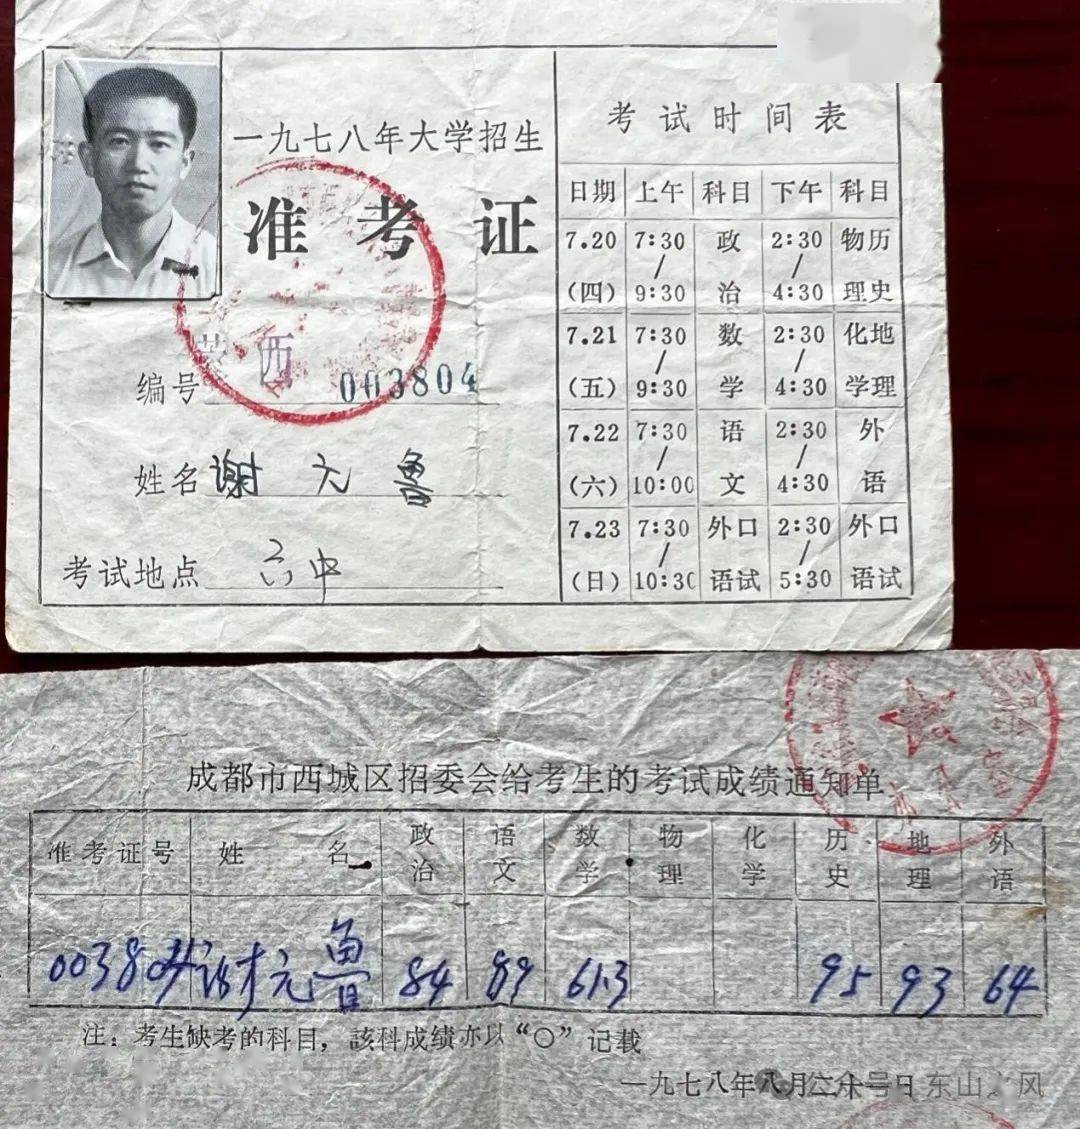 一九七八年大学招生
准考证
编号 西 003804
姓名 谢元鲁
考试地点 六中
考试时间表
日期 上午 科目 下午 科目
7.20 (四) 7:30/9:30 政治 2:30/4:30 物理 历史
7.21 (五) 7:30/9:30 数学 2:30/4:30 化学 地理
7.22 (六) 7:30/10:00 语文 2:30/4:30 外语
7.23 (日) 7:30/10:30 外语 口试 2:30/5:30 外语 口试
成都市西城区招委会给考生的考试成绩通知单
准考证号 姓名 政治 语文 数学 物理 化学 历史 地理 外语
003804 谢元鲁 84 89 61.3 95 93 64
注：考生缺考的科目，該科成绩亦以“○”记载
一九七八年八月